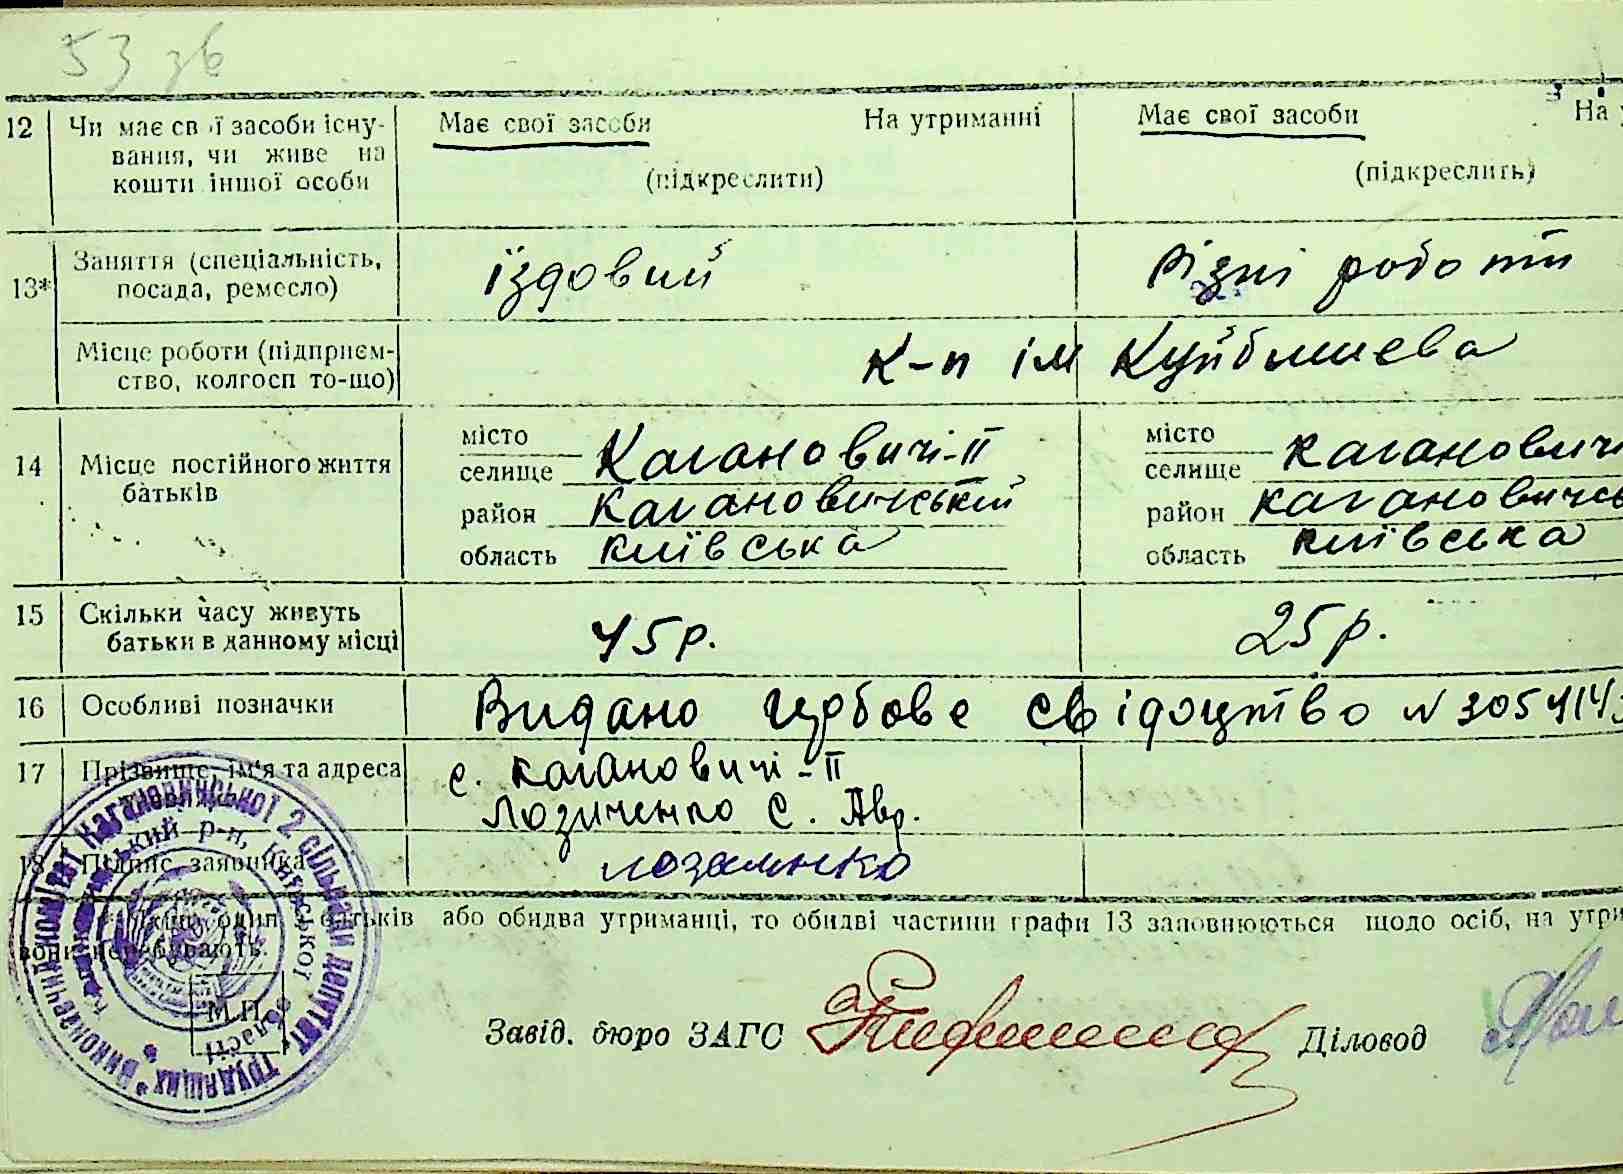 53 зв
12 Чи має свої засоби існу- Має свої засоби На утриманні Має свої засоби На у
вання, чи живе на
кошти іншої особи (підкреслити) (підкреслить)
13* Заняття (спеціальність, їздовий Різні роботи
посада, ремесло)
Місце роботи (підприєм- К-п ім Куйбишева
ство, колгосп то-що)
14 Місце постійного життя батьків
місто
селище Кагановичі-ІІ
район Кагановичський
область київська
місто
селище Кагановичі
район Кагановичсь
область київська
15 Скільки часу живуть 45р. 25р.
батьки в данному місці
16 Особливі позначки Видано гербове свідоцтво N 305414.
17 Прізвище, ім'я та адреса с. Кагановичі-ІІ
Лозиченко С. Авр.
18 Підпис заявника
або обидва утриманці, то обидві частини графи 13 заповнюються щодо осіб, на утри
вони перебувають.
Виконавчий комітет Кагановичської 2 сільради депутат трудящих
р-н, Київської області
М.П.
Завід. бюро ЗАГС Діловод